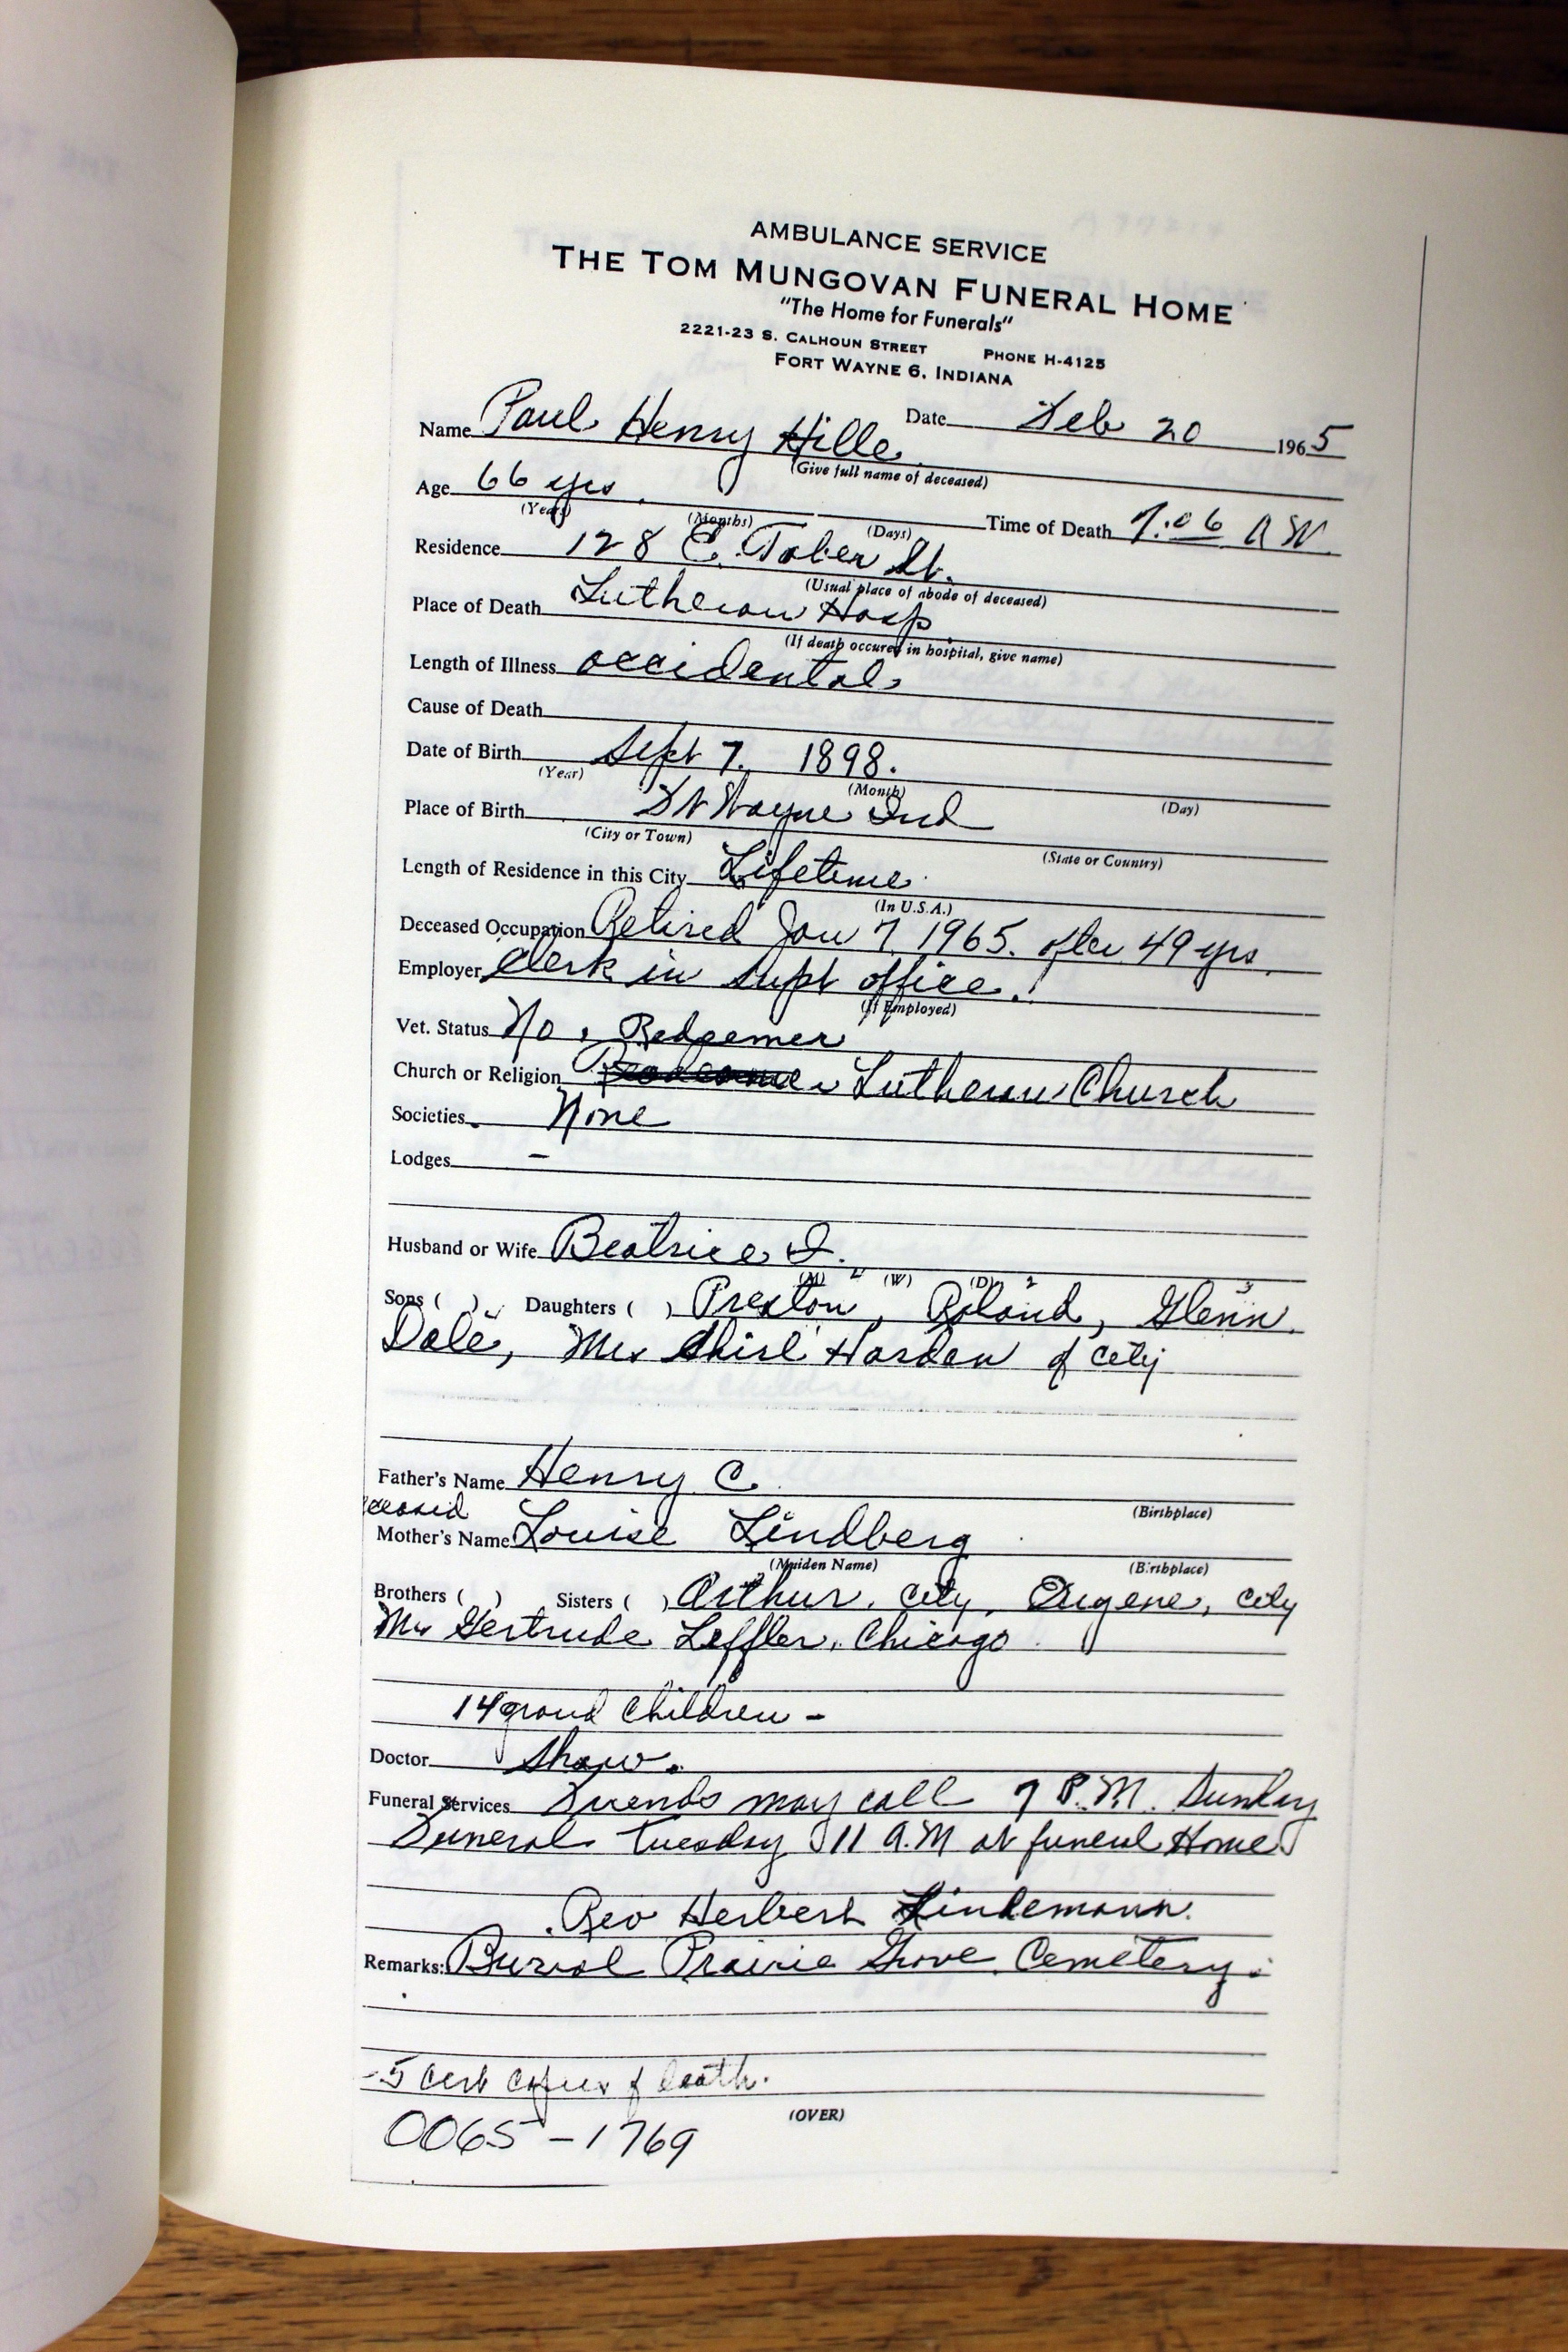 AMBULANCE SERVICE
THE TOM MUNGOVAN FUNERAL HOME
"The Home for Funerals"
2221-23 S. CALHOUN STREET PHONE H-4125
FORT WAYNE 6, INDIANA
Name Paul Henry Hille Date Feb 20 1965
(Give full name of deceased)
Age 66 yrs. Time of Death 7:06 A M.
(Years) (Months) (Days)
Residence 128 E. Taber St.
(Usual place of abode of deceased)
Place of Death Lutheran Hosp
(If death occured in hospital, give name)
Length of Illness accidental
Cause of Death
Date of Birth Sept 7, 1898.
(Year) (Month) (Day)
Place of Birth Ft Wayne Ind
(City or Town) (State or Country)
Length of Residence in this City Lifetime
(In U.S.A.)
Deceased Occupation Retired Jan 7, 1965. after 49 yrs.
Employer Clerk in Supt office.
(If Employed)
Vet. Status No. Redeemer
Church or Religion Lutheran Church
Societies None
Lodges –
Husband or Wife Beatrice I.
(M) (W) (D)
Sons ( ) Daughters ( ) Preston, Roland, Glenn.
Dale, Mrs Harden of city
Father's Name Henry C.
(Birthplace)
Mother's Name Louise Lindberg
(Maiden Name) (Birthplace)
Brothers ( ) Sisters ( ) Arthur, city, Eugene, city
Mrs Gertrude Leffler, Chicago
14 grand children –
Doctor Shaw.
Funeral Services Friends may call 7 P.M. Sunday
Funeral Tuesday 11 A.M at funeral Home
Rev Herbert Lindemann.
Remarks: Burial Prairie Grove Cemetery.
5 cert copies of death.
(OVER)
0065-1769